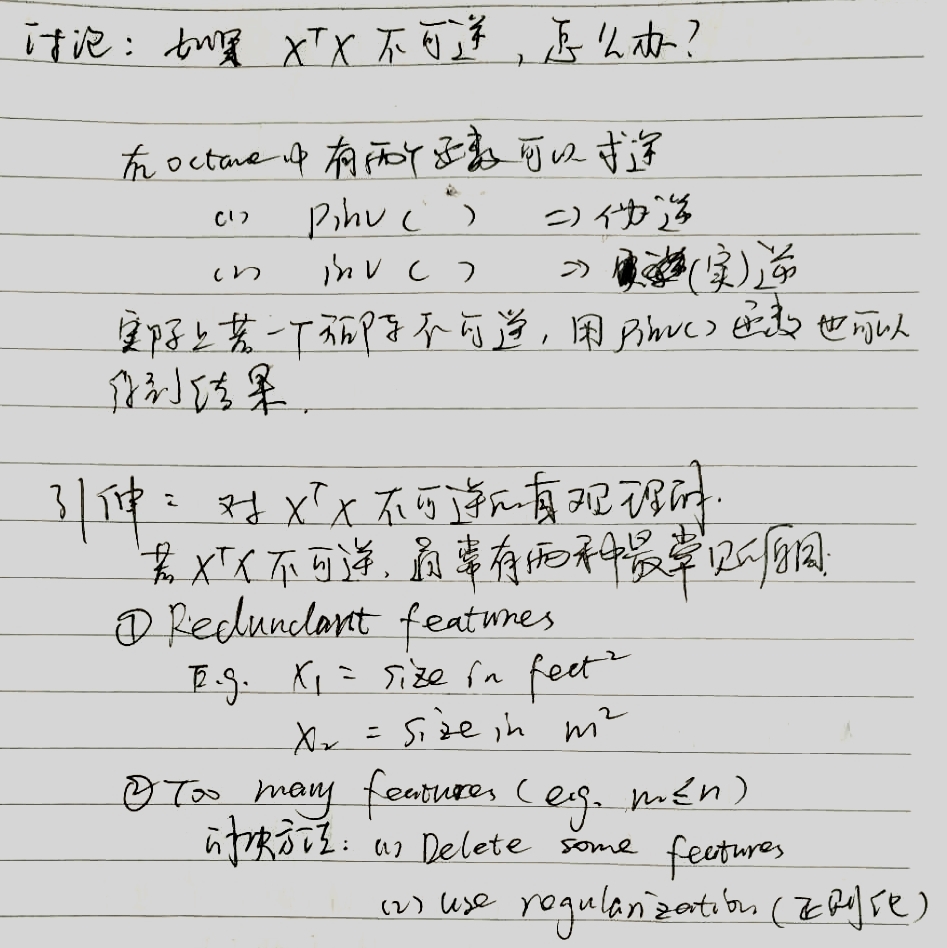 讨论：如果 XᵀX 不可逆，怎么办？
在 octave 中 有两个函数可以求逆
(1) Pinv ( ) => 伪逆
(2) inv ( ) => (实)逆
实际上若一个矩阵不可逆，用 pinv() 函数也可以
得到结果.
引伸：对 XᵀX 不可逆的直观理解.
若 XᵀX 不可逆，通常有两种最常见的原因.
① Redundant features
E.g. X₁ = size in feet²
X₂ = size in m²
② Too many features (e.g. m≤n)
解决方法：(1) Delete some features
(2) use regularization (正则化)